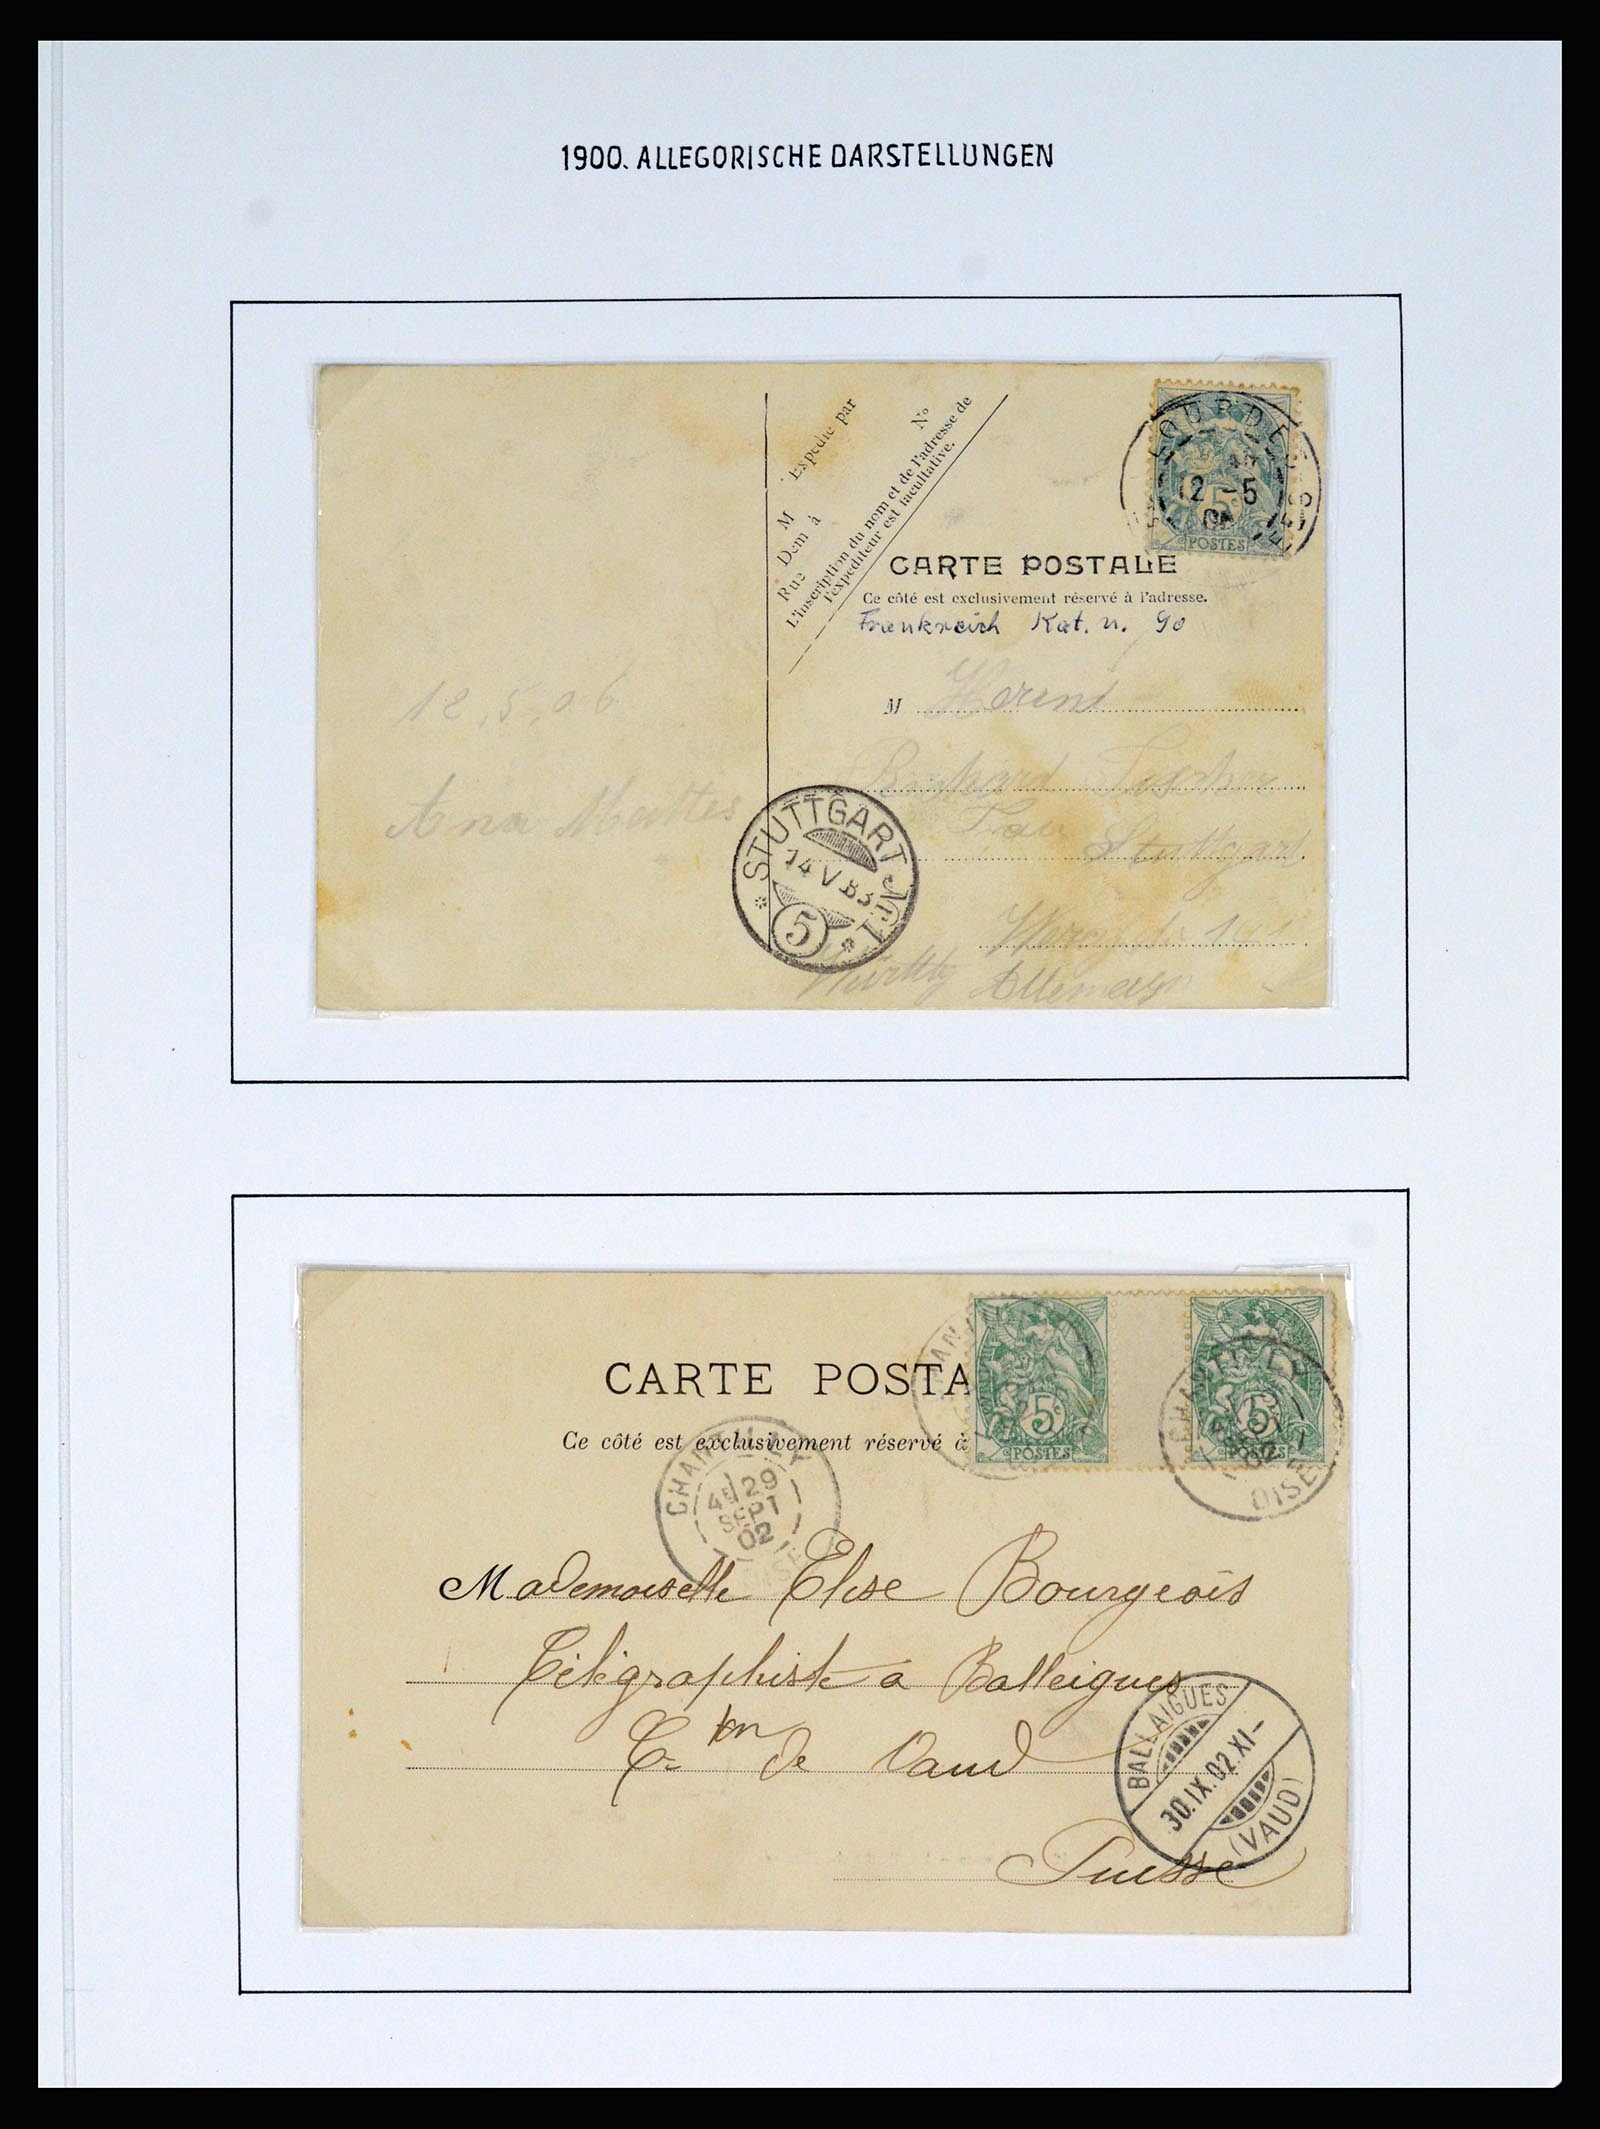 1900. ALLEGORISCHE DARSTELLUNGEN
Expédié par
M
Dem à
Rue
Nº
L'inscription du nom et de l'adresse de
l'expéditeur est facultative.
LOURDES
12 -5
5c
POSTES
CARTE POSTALE
Ce côté est exclusivement réservé à l'adresse.
Frankreich Kat. n. 90
12.5.06
M
Stuttgart
STUTTGART Nr. 1
14 V B3
5
Allemagn
CARTE POSTA
Ce côté est exclusivement réservé à
5c 5c
POSTES POSTES
CHANTILLY
OISE
CHANTILLY
4E 29
SEPT
02
Mademoiselle Elise Bourgeois
Télégraphiste a Balleigues
Cton de Vaud
Suisse
BALLAIGUES
30.IX.02.XI-
(VAUD)